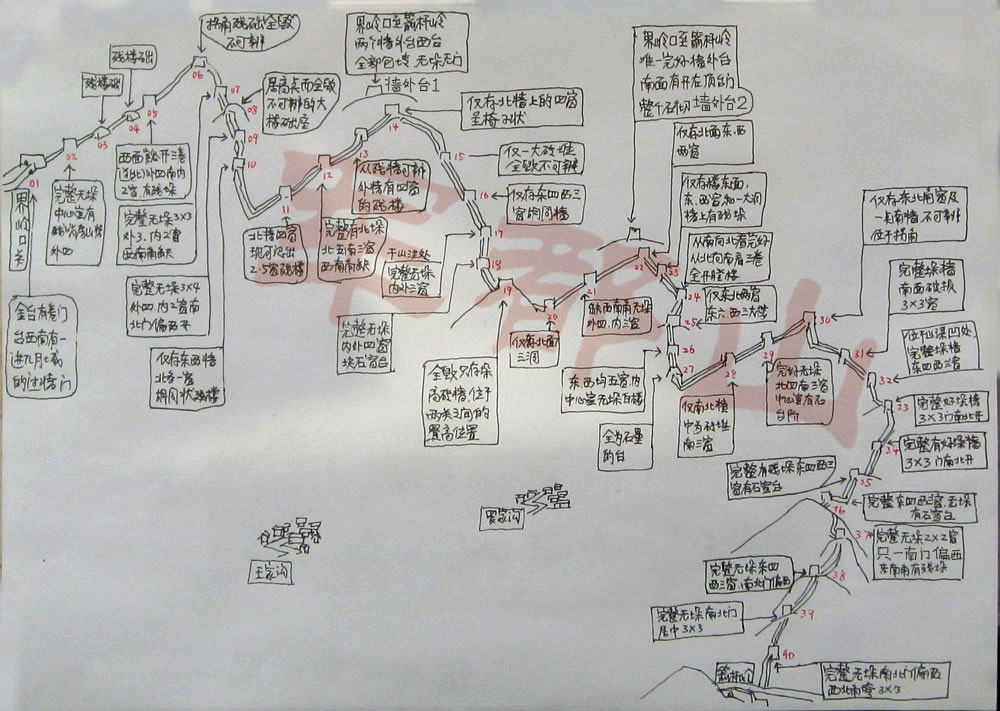 拐角残础全毁
不可辨
残楼础
残楼础
果岭口至箭杆岭
两个墙外台西台
全部包墙 无垛无门
墙外台1
果岭口至箭杆岭
唯一完好墙外台
南面有开左顶台门
整个石彻 墙外台2
居高点而全毁
不可辨的大
楼础座
仅存北墙上的四窗
呈椅子状
仅一大砖堆
全毁不可辨
仅存东四西三
窗胡同楼
仅存北面东、西
西窗
仅存楼东面,
上有残垛
从南向北看完好
全开壁楼
仅东北西窗
仅存东北角窗及
一点南墙 不可辨
位于拐角
完整垛楼
南面破损
3×3窗
位于山梁凹处
完整垛楼
东四西三窗
完整好垛楼
3×3门南北开
完整有好垛楼
3×3门南北开
完整有残垛东四西三
窗有石窗台
完整东四西三窗,无垛
有石窗台
完整无垛2×2窗
只一南门偏西
东南角有残垛
完整无垛东四
西三窗,南北门偏西
完整无垛南北门
居中3×3
完整无垛南北门偏西
3×3
完整无垛
中心室有
外四
界岭口关
金台有卷门
台西南有一
的过墙门
西面
2窗 有残垛
完整无垛3×3
外3、内2窗
西南角缺
完整无垛3×4
外四、内2窗南
北门偏西开
仅存东西墙
北旁一窗
胡同状残楼
北墙四窗
现可没出
2.5窗残楼
完整有北垛
北五南三窗
西南角缺
从残墙可辨
外楼有四窗
的残楼
于山洼处
完整无垛
内外三窗
完整无垛
内外四窗
块石窗台
全毁只存垛
高砖墙,位于
两关之间的
最高位置
仅存北面
三洞
缺西南角无垛
外四、内三窗
东、西均五窗,内
中心室无垛瓦楼
全为石垒
的台
仅南北墙
中为砖堆
南三窗
完好无垛
北四南三窗
中心室有石
台阶
罗家沟
王家沟
箭杆岭
01
02
03
04
05
06
07
08
09
10
11
12
13
14
15
16
17
18
19
20
21
22
23
24
25
26
27
28
29
30
31
32
33
34
35
36
37
38
39
40